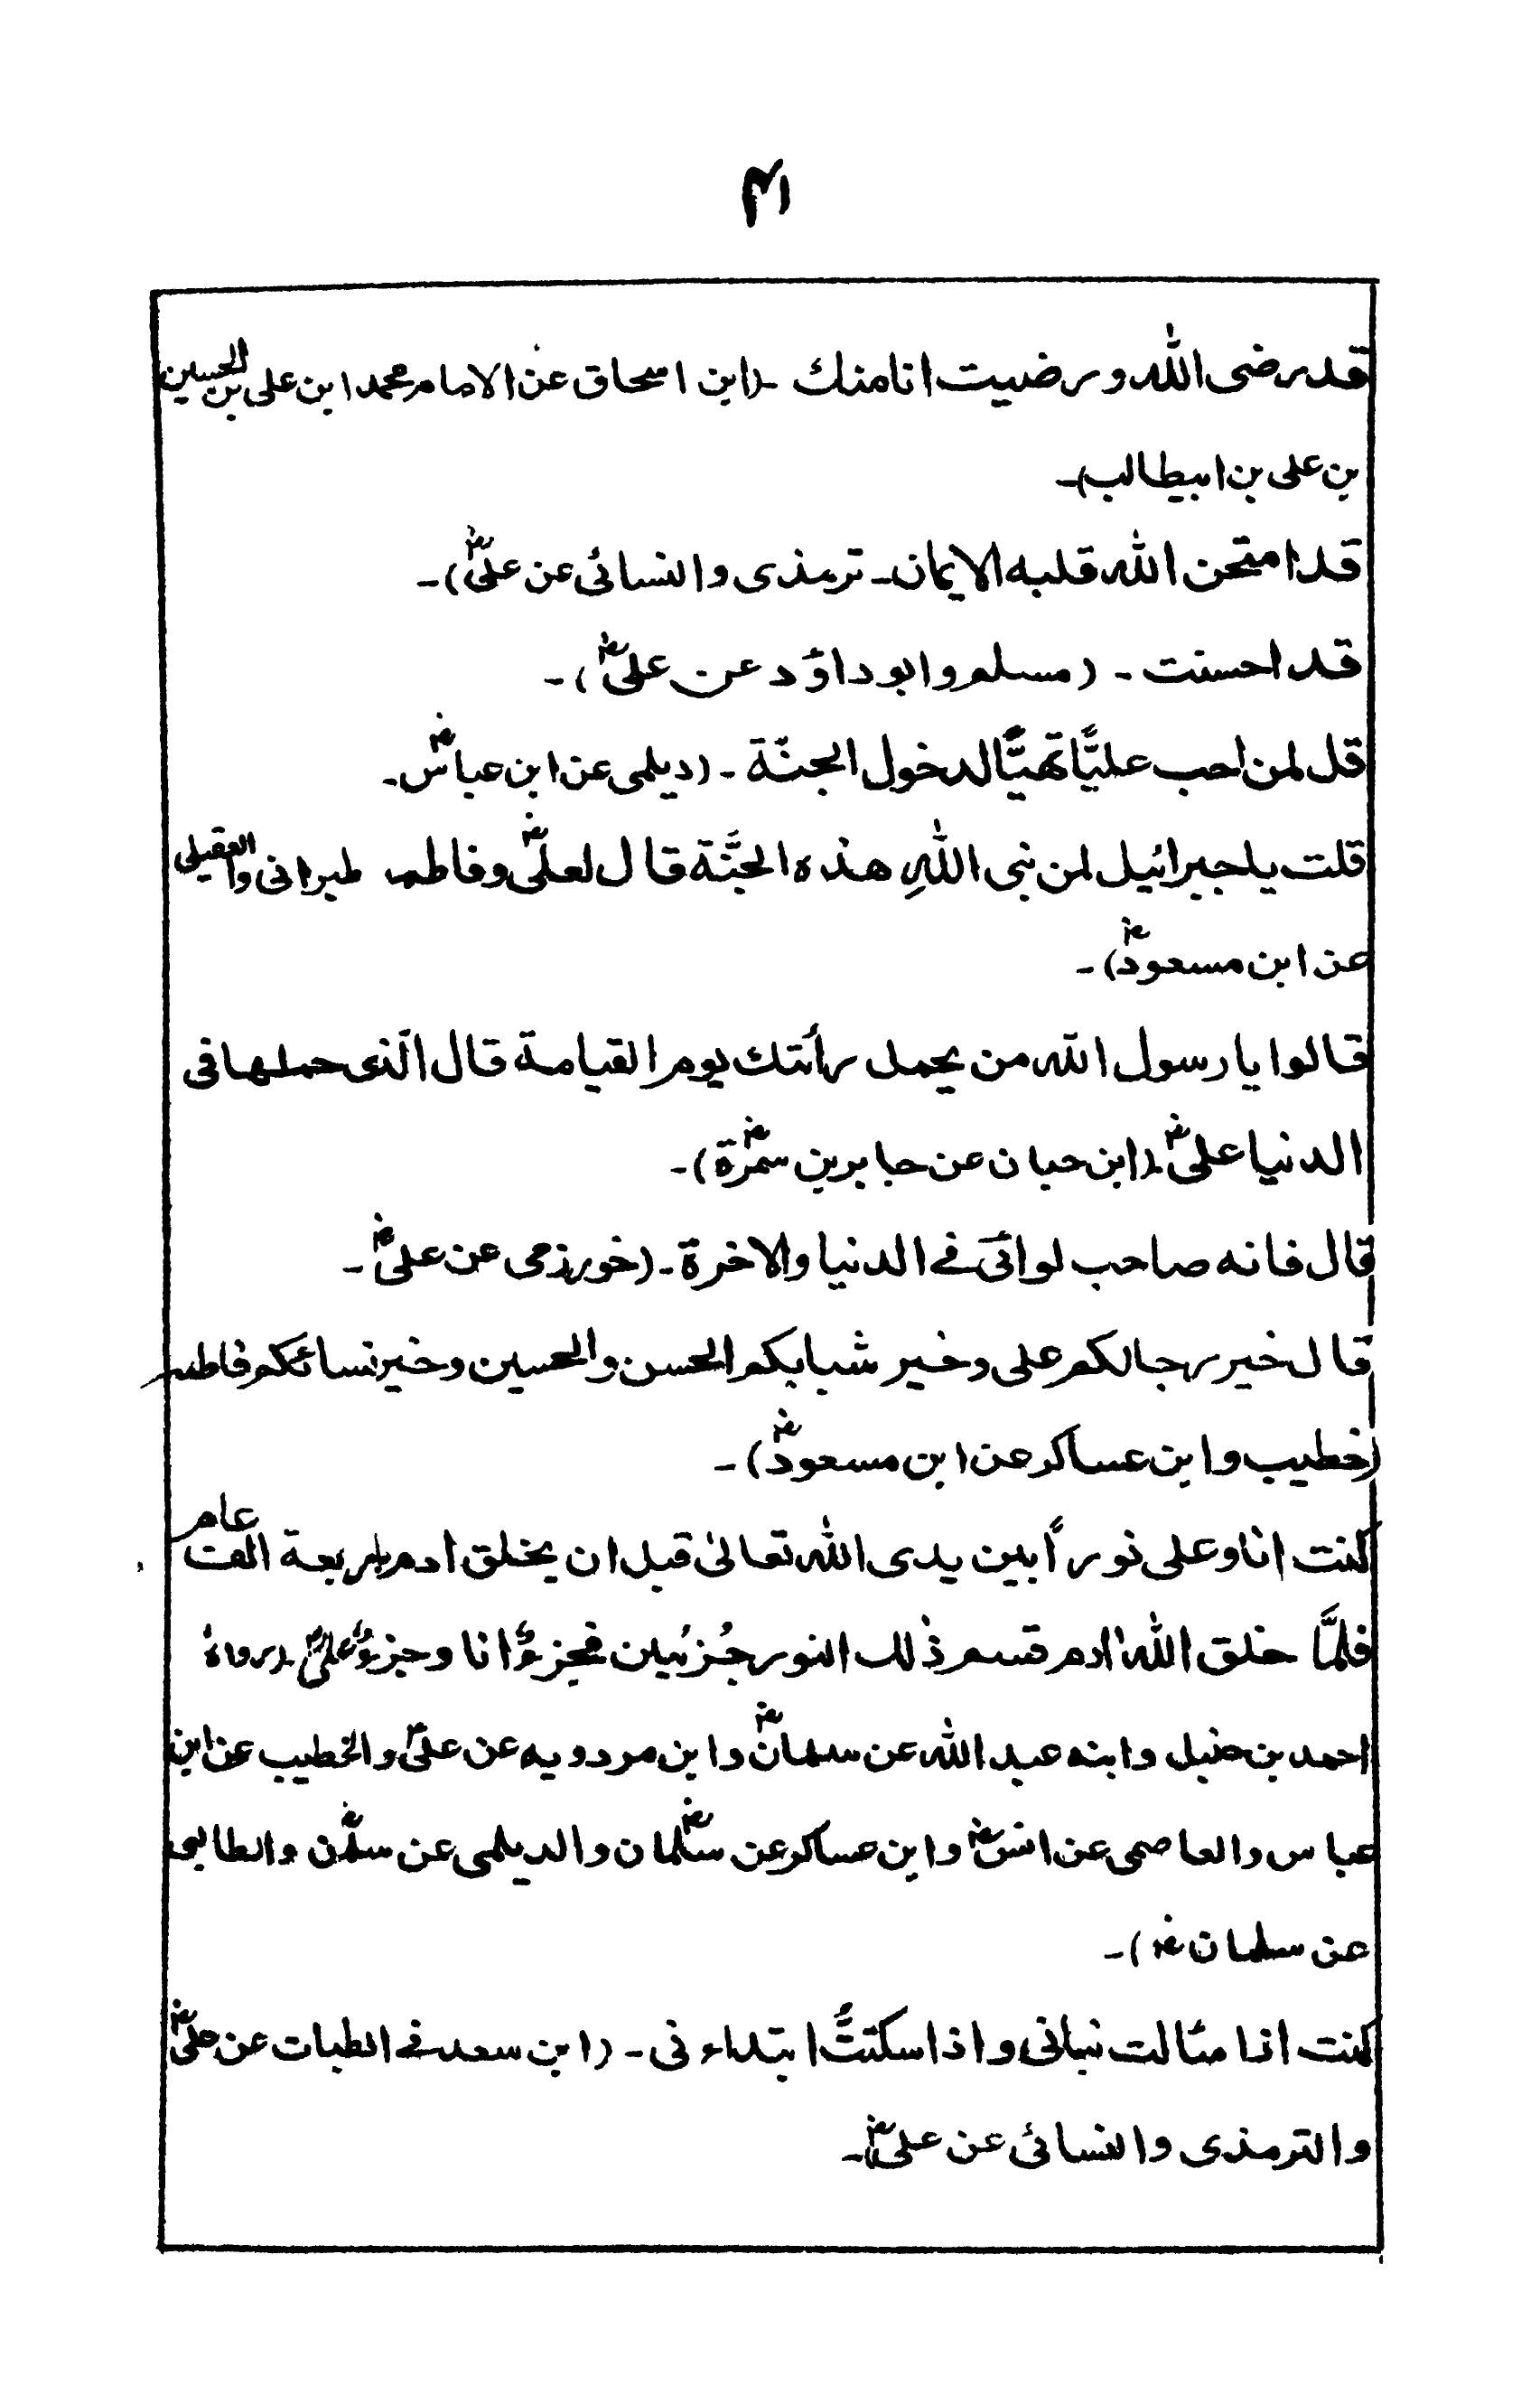 ۴۱
قد رضی الله ورضیت انا منك ۔ (ابن اسحاق عن الامام محمد ابن علی بن الحسین
بن علی بن ابیطالب)۔
قد امتحن الله قلبه الایمان۔ ترمذی والنسائی عن علیؓ)۔
قد احسنت ۔ (مسلم وابو داؤد عن علیؓ)۔
قل لمن احب علیًّا تهیَّأ لدخول الجنّة ۔ (دیلمی عن ابن عباسؓ۔
قلت یا جبرائیل لمن نبی اللهِ هذه الجنَّة قال لعلیؓ وفاطمه طبرانی والعقیلی
عن ابن مسعودؓ)۔
قالوا یا رسول الله من یحمل رأتتك یوم القیامة قال الّذی حملها فی
الدنیا علیؓ۔ (ابن حبان عن جابر بن سمرةؓ)۔
قال فانه صاحب لوائی فے الدنیا والاخرة۔ (خورزمی عن علیؓ۔
قال خیر رجالکم علی وخیر شبابکم الحسن والحسین وخیر نسائکم فاطمه
(خطیب وابن عساکر عن ابن مسعودؓ)۔
کنت انا وعلی نوراً بین یدی الله تعالیٰ قبل ان یخلق ادم باربعة الف عام
فلمَّا خلق الله ادم قسم ذٰلك النور جُزئین فجزءٌ انا وجزءٌ علیؓ۔ (رواهُ
احمد بن حنبل وابنه عبد الله عن سلمانؓ وابن مردویه عن علیؓ والخطیب عن ابن
عباس والعاصمی عن انسؓ وابن عساکر عن سلمانؓ والدیلمی عن سلمٰن والطالبی
عن سلمانؓ)۔
کنت اذا سئالت نبانی واذا سکتتُّ ابتداءنی۔ (ابن سعد فے الطبات عن علیؓ
والترمذی والنسائی عن علیؓ)۔